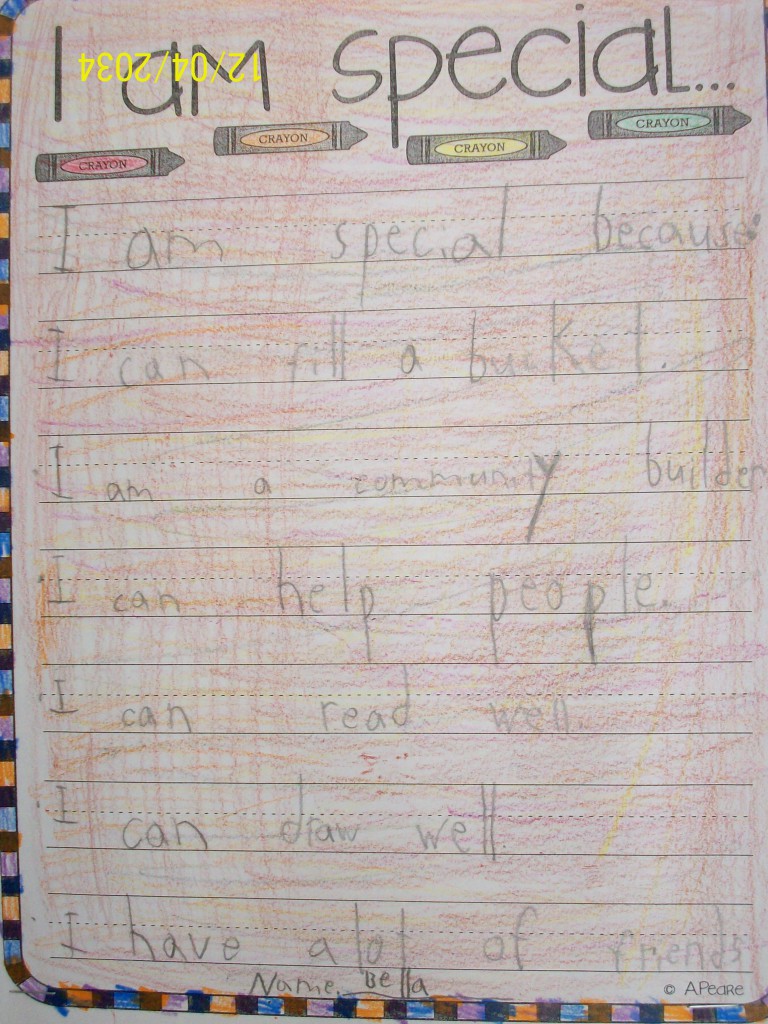 I am special...
12/04/2034
CRAYON CRAYON CRAYON CRAYON
I am special because
I can fill a bucket.
I am a community builder
I can help people.
I can read well.
I can draw well.
I have alot of friends
Name. Bella
© APeare